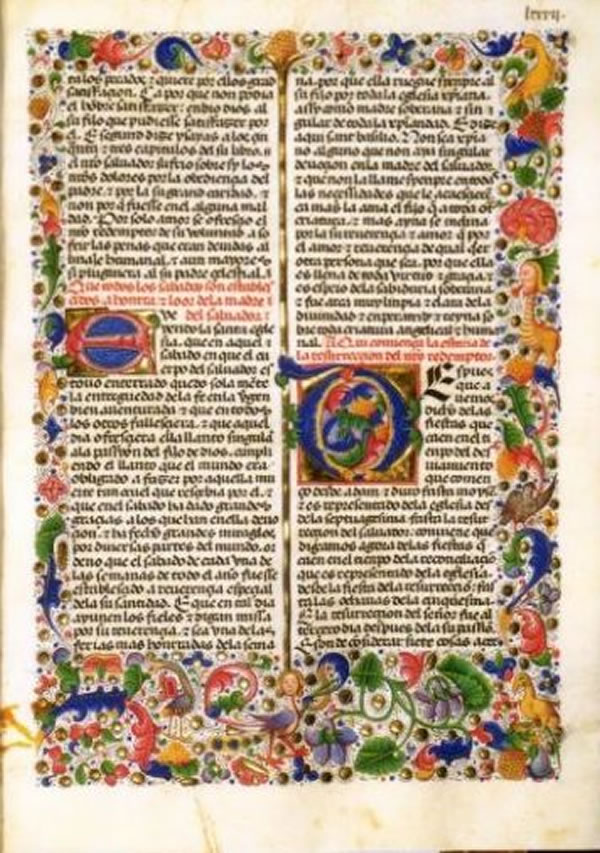 lxxxij.
ra los pecados. ⁊ quiere por ellos grand
satisfacion. Ca por que non podia
el hobre satisfazer: enbio dios al
su filo que pudiesse satisfazer por
el. E segund dize ysayas a los cin
quēta ⁊ tres capitulos del su libro. n
el nr̄o saluador sufrio sobre sy los
nr̄os dolores por la obediencia del
padre. ⁊ por la su grand caridad. ⁊
non por q̄ fuesse en el alguna mal
dad. Por solo amor se ofrescio el
nr̄o redemptor de su voluntad a so
frir las penas que eran deuidas al
linaje humanal. ⁊ aun mayores
si pluguiera al su padre celestial.
Que todos los sabados son estables
cidos a honrra ⁊ loor dela madre
del saluador
ue
la santa egle
sia. que en aquel
sabado en que el cu
erpo del saluador es
touo enterrado quedo sola mēte
la entreguedad dela fe en la virgen
bien auenturada ⁊ que en todos
los otros fallesciera. ⁊ que aquel
dia ofresciera ella llanto singular
ala passion del filo de dios. cumpli
endo el llanto que el mundo era
obligado a fazer por aquella mu
erte
que enel sabado ha dado grandes
gracias a los que han en ella deuo
çion. ⁊ ha fecho grandes miraglos
por diuersas partes del mundo. or
deno que el sabado de cada vna de
las semanas de todo el año fuesse
establesçido a reuerençia espeçial
dela su santidad. E que en tal dia
ayunen los fieles ⁊ digan missa
por su reuerençia. ⁊ sea vna delas
ferias mas honrradas dela sema
na. por que ella ruegue sienpre al
su filo por toda la eglesia xp̄iana.
assy como madre soberana ⁊ sin
gular de toda la xp̄iandad. E dize
aqui sant basilio. Non sea xp̄ia
no alguno que non aya singular
deuocion en la madre del saluador.
⁊ que non la llame syenpre en todas
las neçessidades que le acaesçerē
ca mas la ama el filo q̄ a toda ot̄
criatura. ⁊ mas ayna se inclina
por la su reuerençia ⁊ amor q̄ por
el amor ⁊ reuerençia de qual quier
otra persona que sea. por que ella
es llena de toda virtud ⁊ graçia. ⁊
es espejo dela sabiduria soberana
⁊ fue arca muy linpia ⁊ clara dela
diuinidad ⁊ enperadriz ⁊ reyna so
bre toda criatura angelical ⁊ huma
nal. Aqui comiença la estoria de
la resurrecçion del nr̄o redemptor.
Espues
que a
uemos
dicho delas
fiestas que
caen en el ti
enpo del des
uiamiento
que comen
ço desde adam. ⁊ duro fasta moyse.
⁊ es representado dela eglesia des
dela septuagesima fasta la resur
recçion del saluador: conuiene que
digamos agora delas fiestas q̄
caen en el tienpo dela reconçiliaçiō
que es representado dela eglesia.
desde la fiesta dela resurrecçiō: fas
ta las ochauas dela çinquesma.
La resurrecçion del señor fue al
terçero dia despues dela su passiō.
E son de considerar siete cosas açer